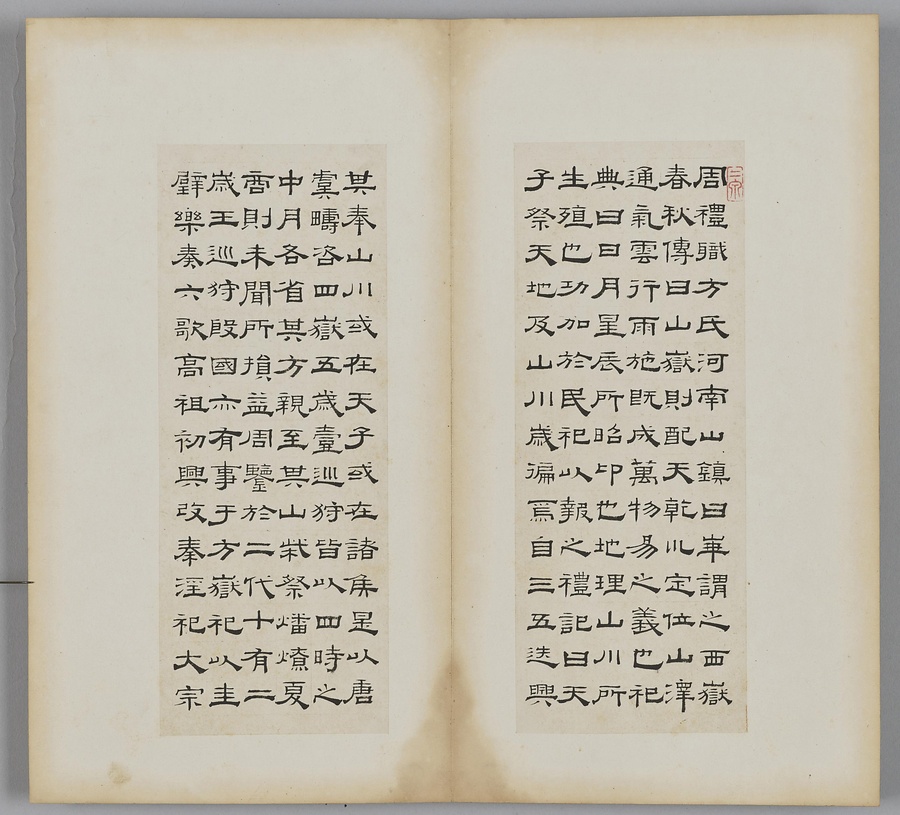 周禮職方氏河南山鎮曰崋謂之西嶽
春秋傳曰山嶽則配天乾巛定位山澤
通氣雲行雨施既成萬物易之義也祀
典曰日月星辰所昭卬也地理山川所
生殖也功加於民祀以報之禮記曰天
子祭天地及山川歲徧焉自三五迭興
其奉山川或在天子或在諸侯是以唐
虞疇咨四嶽五歲壹巡狩皆以四時之
中月各省其方親至其山柴祭燔燎夏
商則未聞所損益周鑒於二代十有二
歲王巡狩殷國亦有事于方嶽祀以圭
璧樂奏六歌高祖初興改秦淫祀大宗